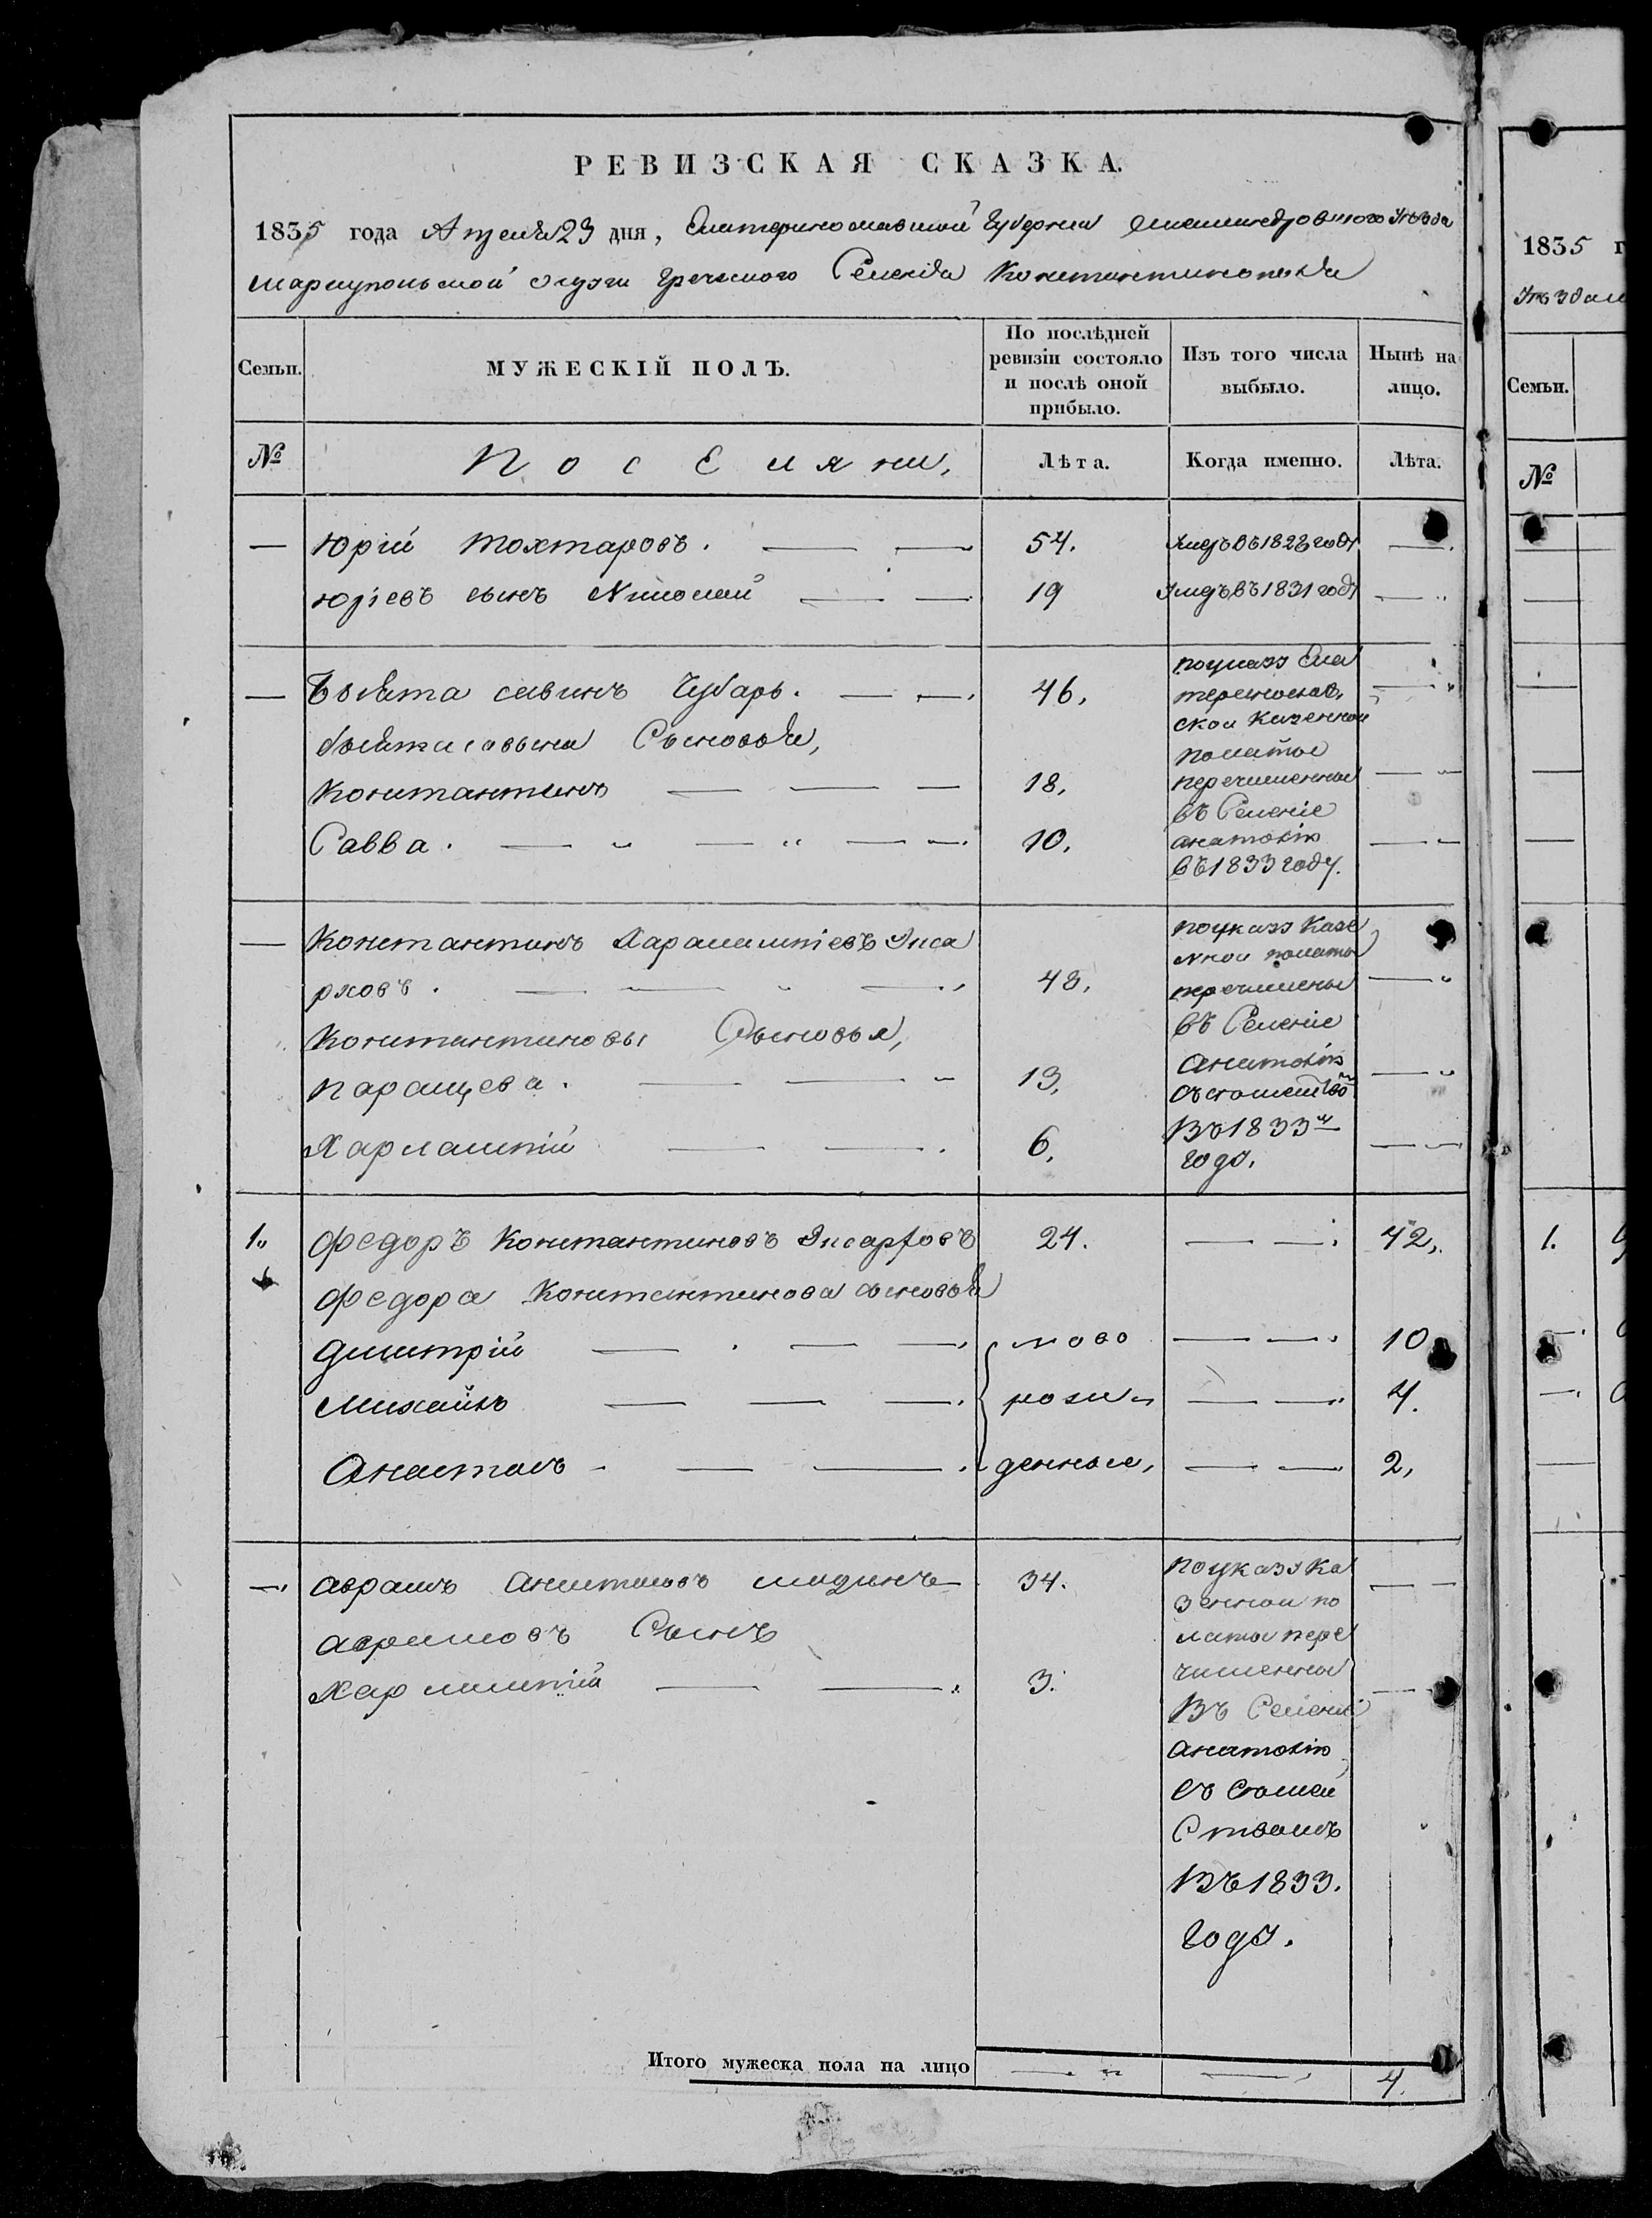 РЕВИЗСКАЯ СКАЗКА.
1835 года Апреля 23 дня, Екатеринославской Губернии Александровского Уѣзда
Мариупольской округи Греческого Селенiя Константинополя
Семьи.
МУЖЕСКІЙ ПОЛЪ.
По послѣдней ревизіи состояло и послѣ оной прибыло.
Изъ того числа выбыло.
Нынѣ на лицо.
№
Поселяни,
Лѣта.
Когда именно.
Лѣта.
— Юрій Тохтаровъ. — — 54. Умеръ въ 1823 году —
Юріевъ сынъ Николай — — 19 Умеръ въ 1831 году — "
— савинъ Чубарь. — — 46,
поуказу Ека
теринослав,
ской Казенной
Полаты
перечисленны
въ Селеніе
анатолію
въ 1833 году.
Сыновья,
Константинъ — — — 18, — "
Савва. — " — " — — 10, — —
— Константинъ Харалампіевъ Эиса
рховъ. — — " — 48, — "
поуказу Казе
нной полаты
перечислены
въ Селеніе
Анатолію
въ 1833м
году.
Константиновы Сыновья,
Паращева. — — " 13, — "
Харлампій — — . 6, — —
1. Федоръ Константиновъ 24. — — 42,
Федора Константинова сыновья
Димитрій — . — — ново — — 10
Михайлъ — — — рожи — — 4.
Анастасъ - — — денные, — — 2,
— авраамъ 34. — —
поуказу Ка
зенной по
латы пере
численны
Въ Селеніе
анатолію
съ семей
Ствомъ
Въ 1833.
году.
аврамовъ Сынъ
Харлампій — — 3. —
Итого мужеска пола на лицо — " — 4.
1835 г
Уѣзда
Семьи.
№
1.